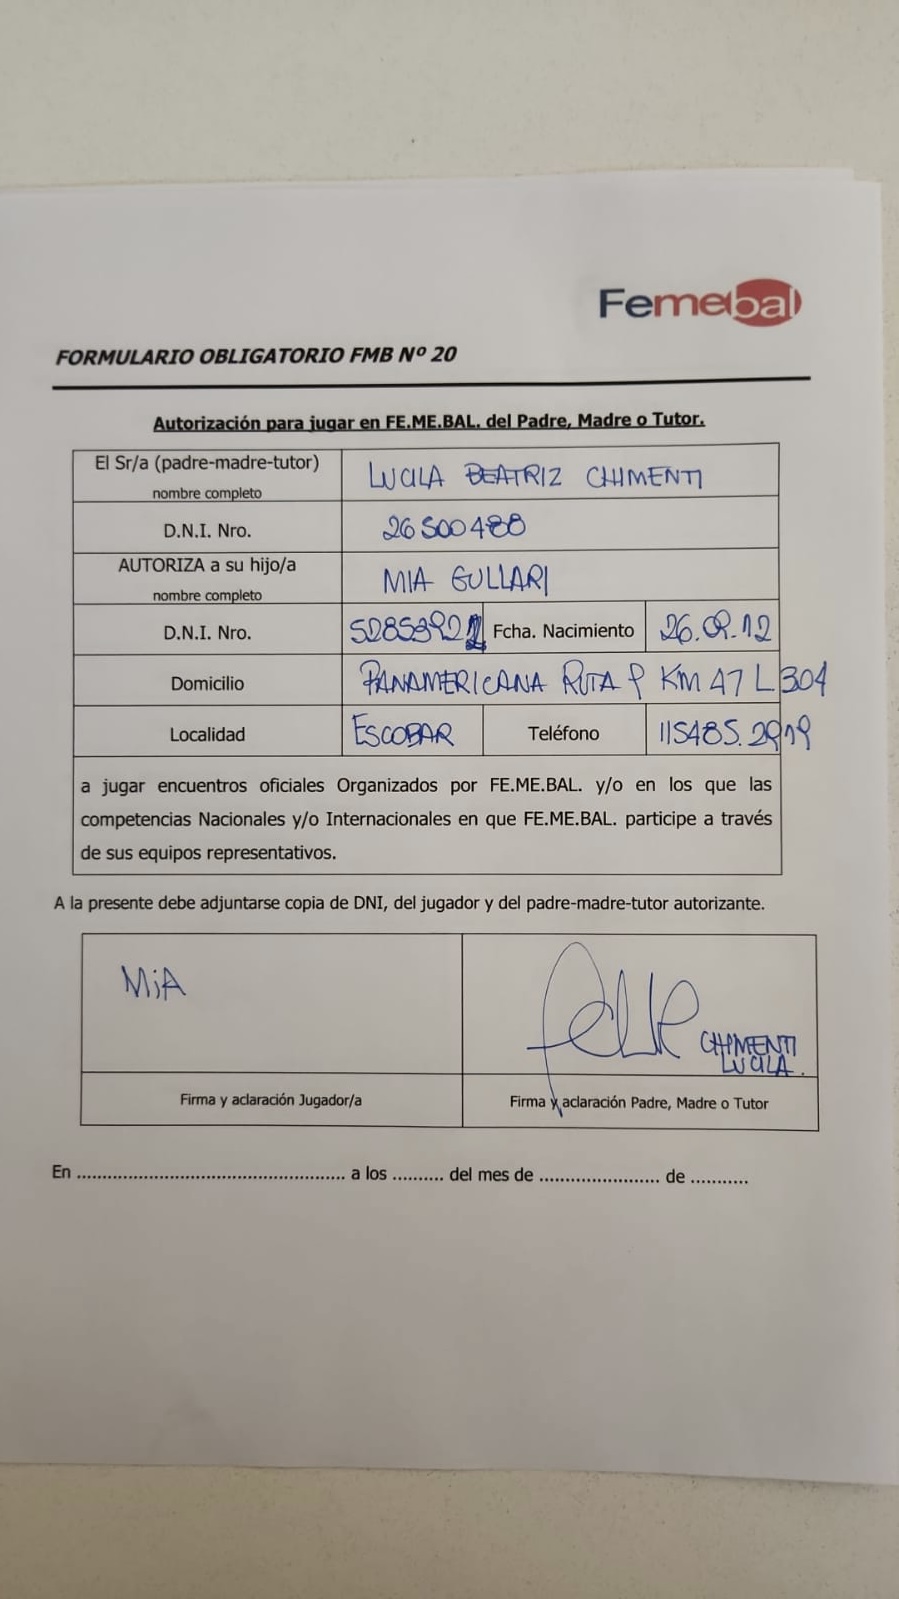 Femebal
FORMULARIO OBLIGATORIO FMB Nº 20
Autorización para jugar en FE.ME.BAL. del Padre, Madre o Tutor.
El Sr/a (padre-madre-tutor) nombre completo LUCILA BEATRIZ CHIMENTI
D.N.I. Nro. 26500488
AUTORIZA a su hijo/a nombre completo MIA GULLARI
D.N.I. Nro. Fcha. Nacimiento 26.09.12
Domicilio PANAMERICANA RUTA 9 KM 47 L 304
Localidad ESCOBAR Teléfono 115485.2919
a jugar encuentros oficiales Organizados por FE.ME.BAL. y/o en los que las
competencias Nacionales y/o Internacionales en que FE.ME.BAL. participe a través
de sus equipos representativos.
A la presente debe adjuntarse copia de DNI, del jugador y del padre-madre-tutor autorizante.
MiA
CHIMENTI
LUCILA.
Firma y aclaración Jugador/a Firma y aclaración Padre, Madre o Tutor
En ................................................. a los ......... del mes de ...................... de ...........